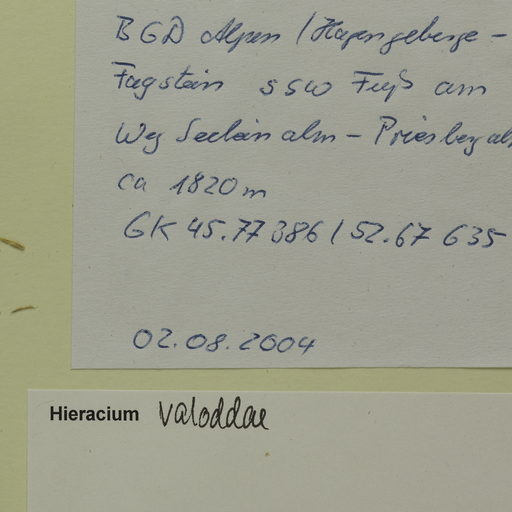 BGD Alpen / Hagengebirge -
Fagstein SSW Fuß am
Weg Seeleinalm - Priesbergalm
ca 1820m
GK 45.77 386 / 52.67 635
02.08.2004
Hieracium valoddae